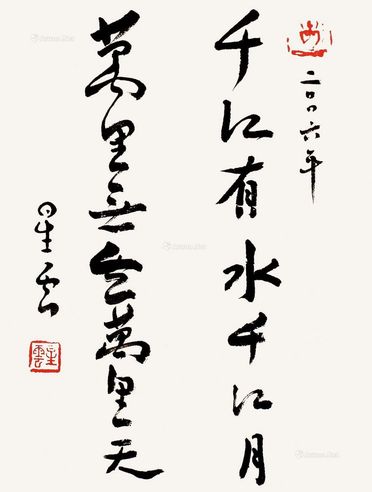 二〇〇六年
千江有水千江月
萬里無雲萬里天
星雲
星雲